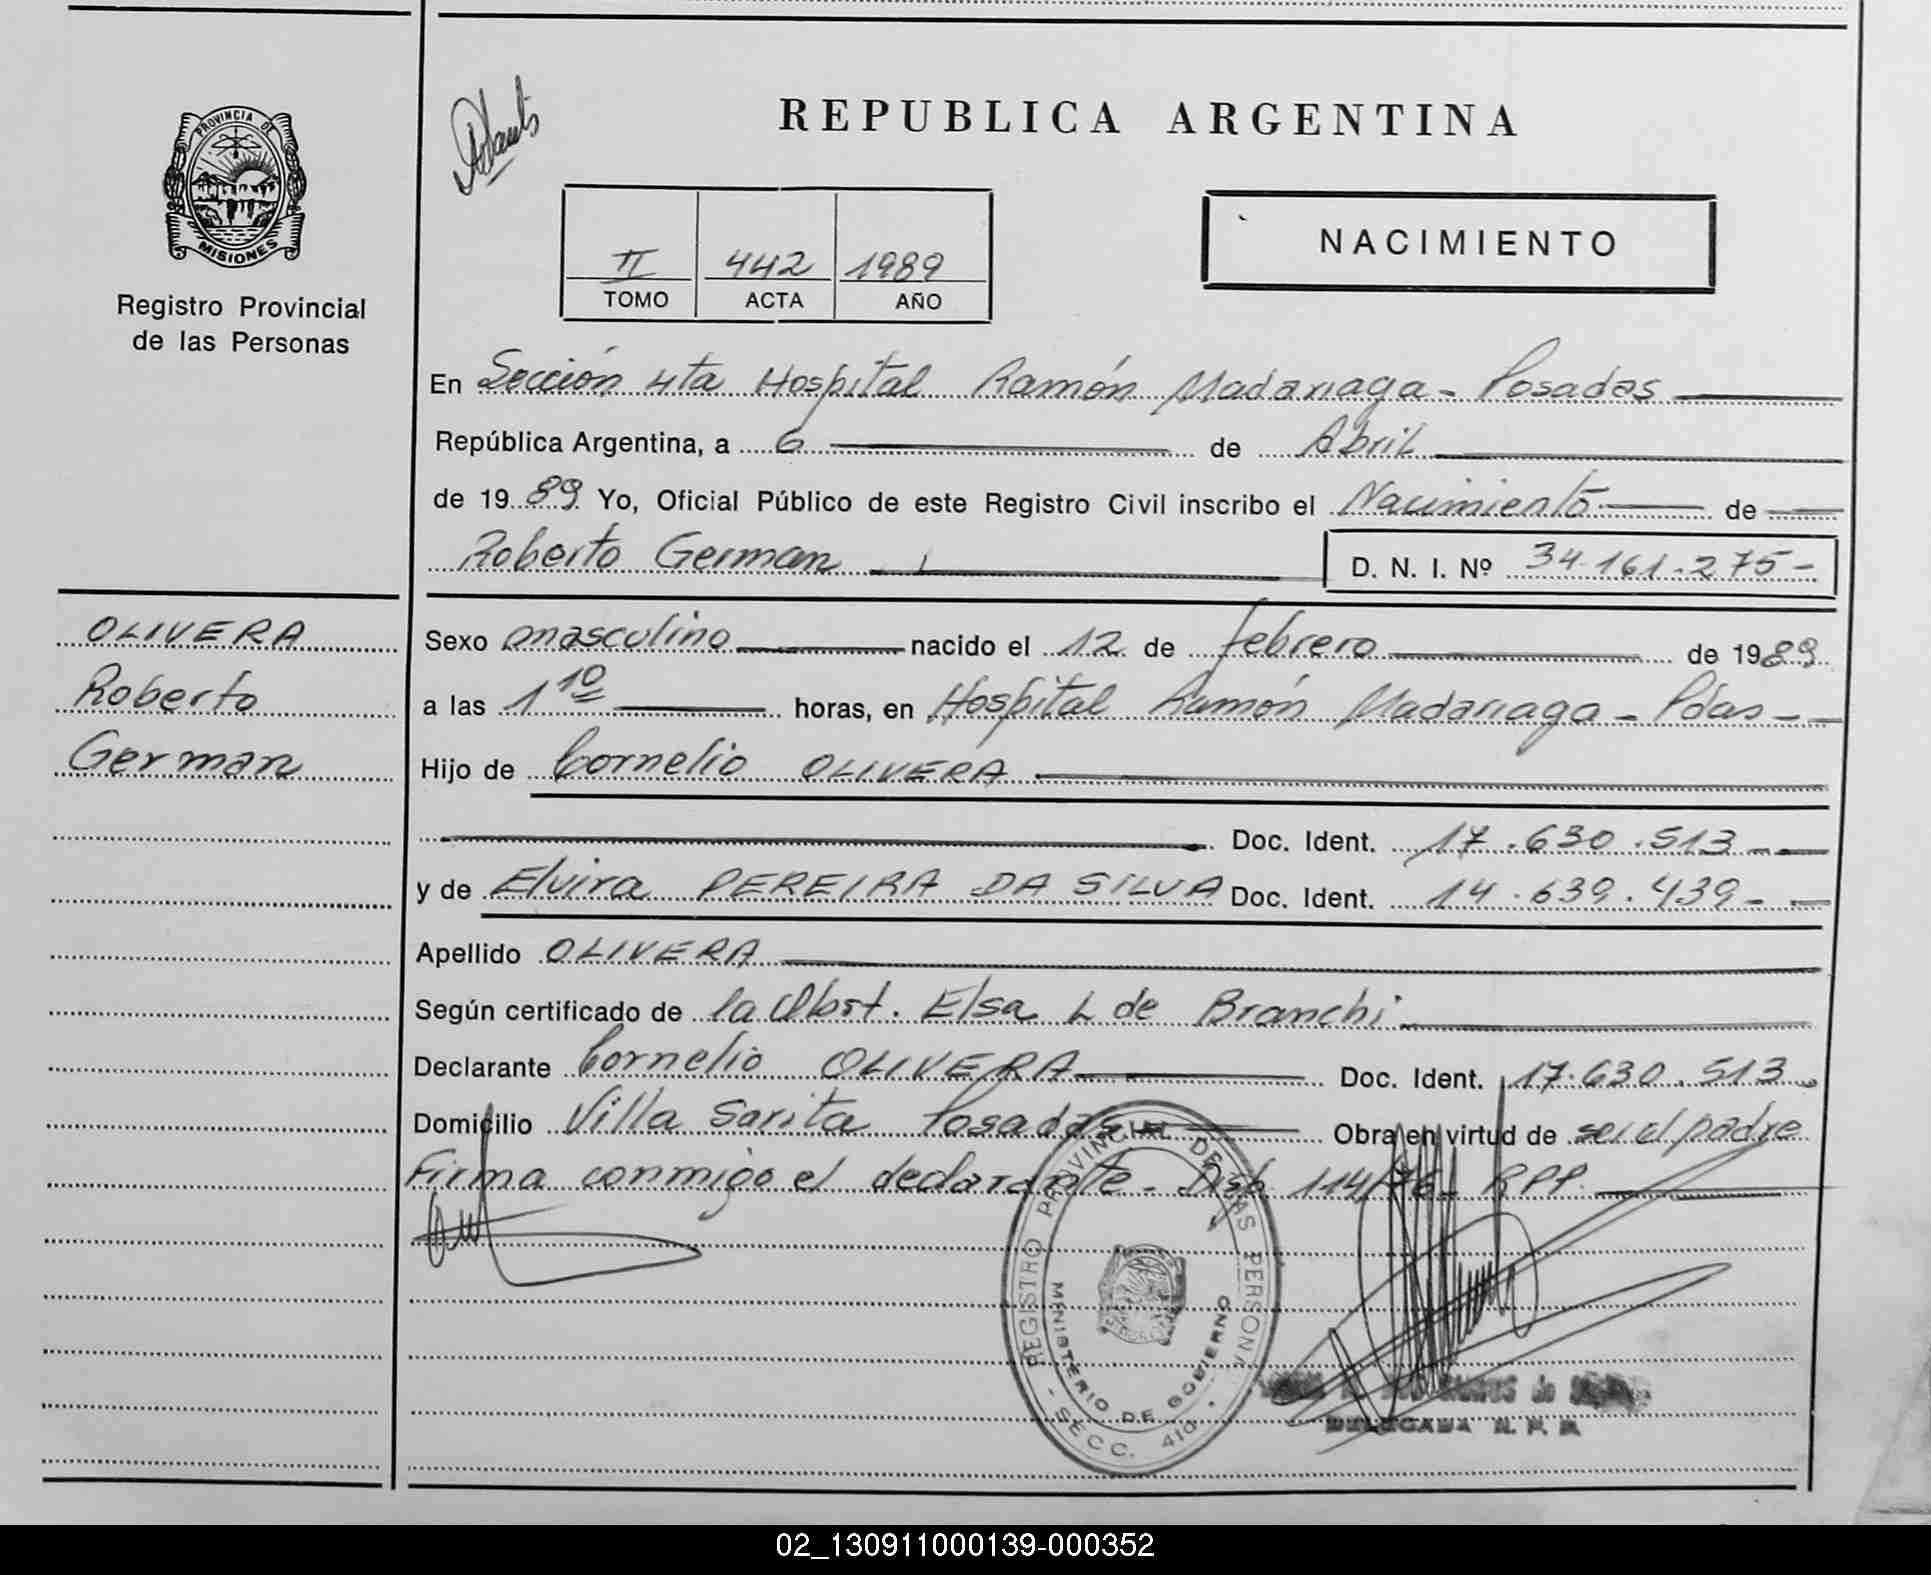 PROVINCIA DE
MISIONES
Registro Provincial
de las Personas
REPUBLICA ARGENTINA
NACIMIENTO
II 442 1989
TOMO ACTA AÑO
En Sección 4ta Hospital Ramón Madariaga - Posadas
República Argentina, a 6 de Abril
de 1989 Yo, Oficial Público de este Registro Civil inscribo el Nacimiento de
Roberto German D. N. I. Nº 34.161.275-
OLIVERA
Roberto
German
Sexo masculino nacido el 12 de febrero de 1989
a las 1 10 horas, en Hospital Ramón Madariaga - Pdas -
Hijo de Cornelio OLIVERA
Doc. Ident. 17.630.513
y de Elvira PEREIRA DA SILVA Doc. Ident. 14.639.439-
Apellido OLIVERA
Según certificado de la Obst. Elsa L de Branchi
Declarante Cornelio OLIVERA Doc. Ident. 17.630.513
Domicilio Villa Sarita Posadas Obra en virtud de ser el padre
Firma conmigo el declarante. Disp. 114/76 - RPP.
REGISTRO PROVINCIAL DE LAS PERSONAS
MINISTERIO DE GOBIERNO
- SECC. 410 -
DELEGADA R. P. P.
02_130911000139-000352